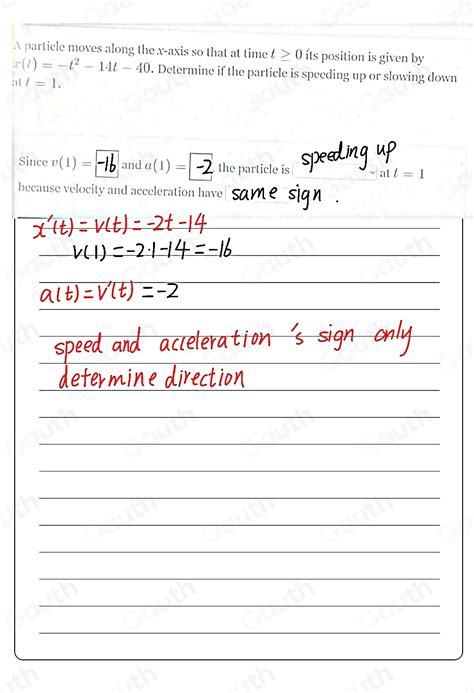 A particle moves along the x-axis so that at time t ≥ 0 its position is given by
x(t) = −t² − 14t − 40. Determine if the particle is speeding up or slowing down
at t = 1.
Since v(1) = -16 and a(1) = -2 the particle is speeding up at t = 1
because velocity and acceleration have same sign .
x'(t) = v(t) = -2t -14
v(1) = -2·1 -14 = -16
a(t) = v'(t) = -2
speed and acceleration 's sign only
determine direction
Gauth